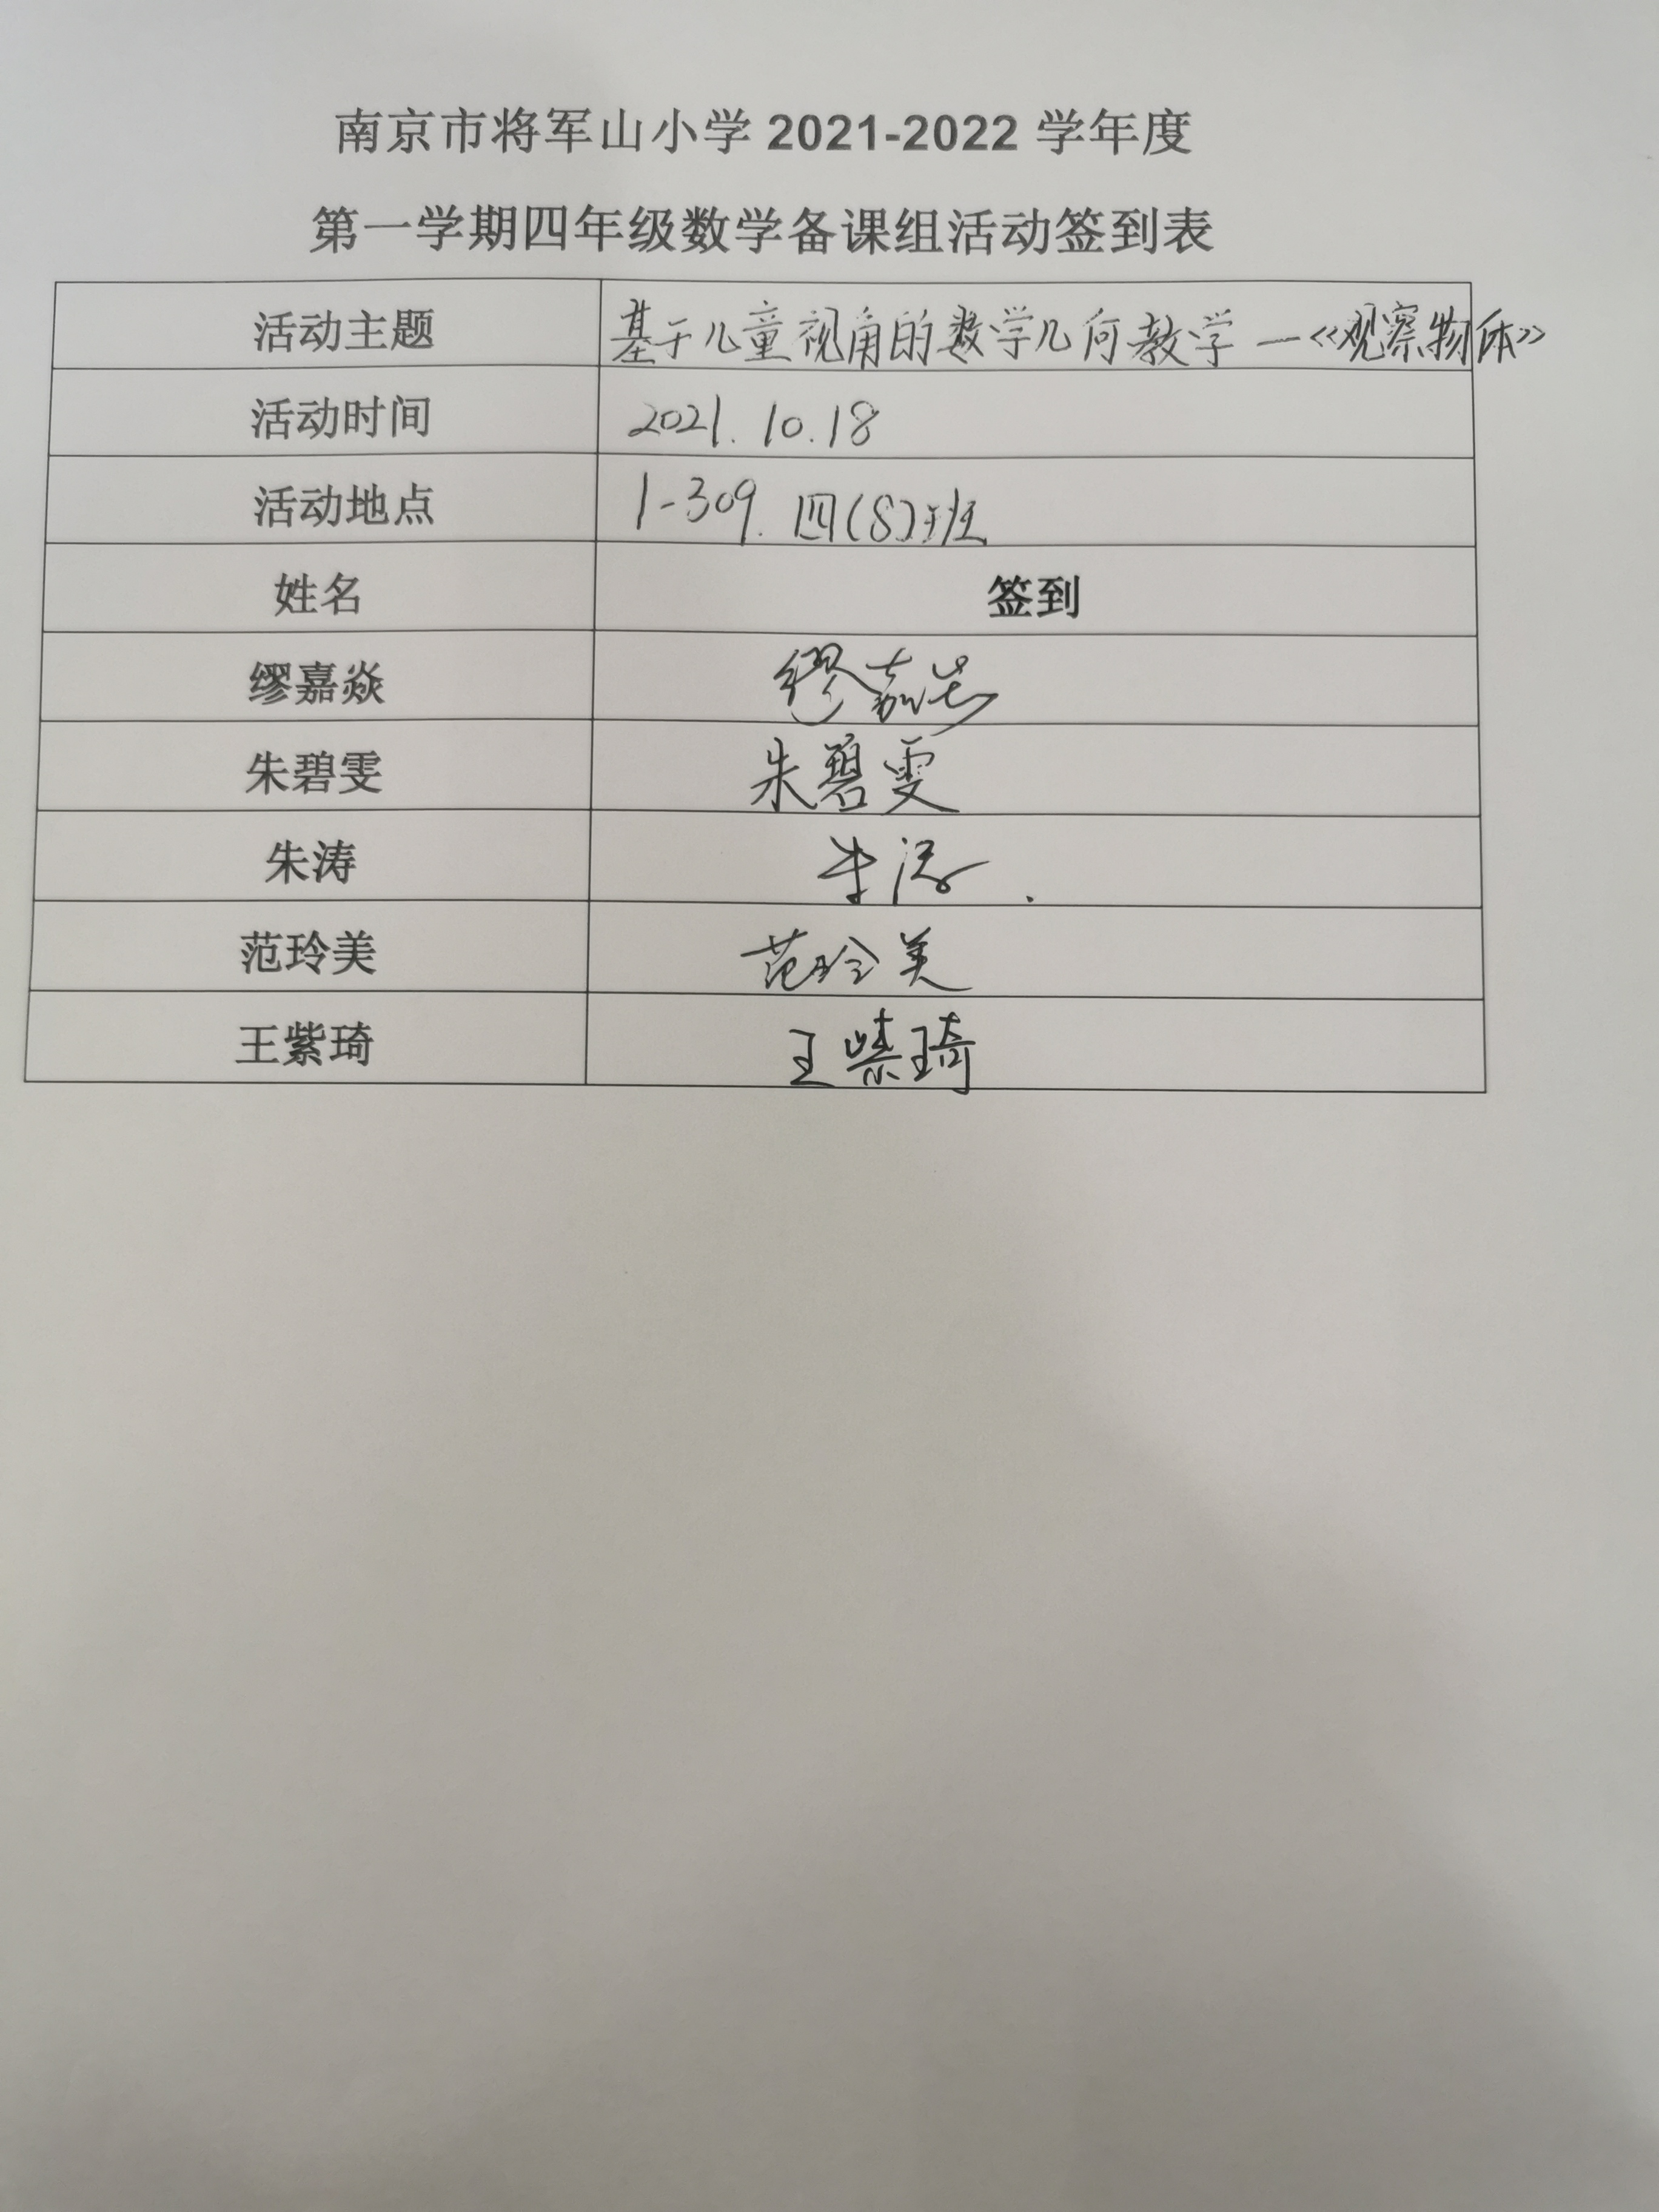 南京市将军山小学 2021-2022 学年度
第一学期四年级数学备课组活动签到表
活动主题 基于儿童视角的数学几何教学—《观察物体》
活动时间 2021.10.18
活动地点 1-309. 四(8)班
姓名 签到
缪嘉焱 缪嘉焱
朱碧雯 朱碧雯
朱涛 朱涛.
范玲美 范玲美
王紫琦 王紫琦